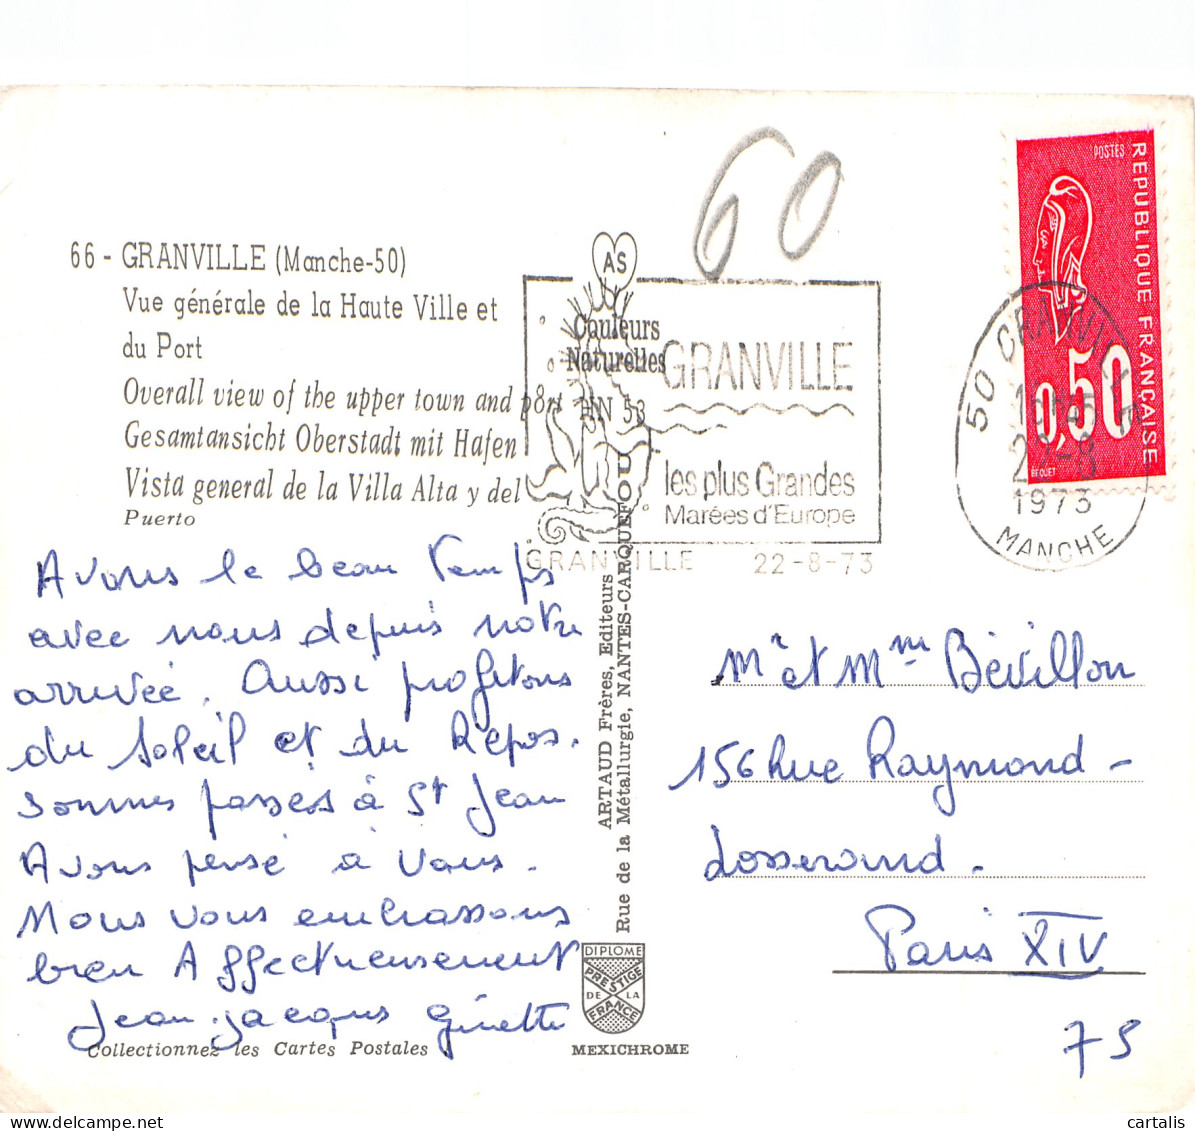 60
66 - GRANVILLE (Manche-50)
Vue générale de la Haute Ville et
du Port
Overall view of the upper town and port
Gesamtansicht Oberstadt mit Hafen
Vista general de la Villa Alta y del
Puerto
AS
Couleurs
Naturelles
HN 53
GRANVILLE
les plus Grandes
Marées d'Europe
GRANVILLE 22-8-73
POSTES
REPUBLIQUE FRANÇAISE
0,50
BEQUET
50 GRANVILLE
1973
MANCHE
Avons le beau temps
avec nous depuis notre
arrivée. Aussi profitons
du soleil et du Repos.
Sommes passés à St Jean
Avons pensé à Vous.
Nous vous embrassons
bien Affectueusement
Jean-jacques Ginette
Collectionnez les Cartes Postales
ARTAUD Frères, Editeurs
Rue de la Métallurgie, NANTES-CARQUEFOU
DIPLOME
PRESTIGE
DE LA
FRANCE
MEXICHROME
Mr et Mme Bévillon
156 Rue Raymond -
Losserand.
Paris XIV
75
cartalis